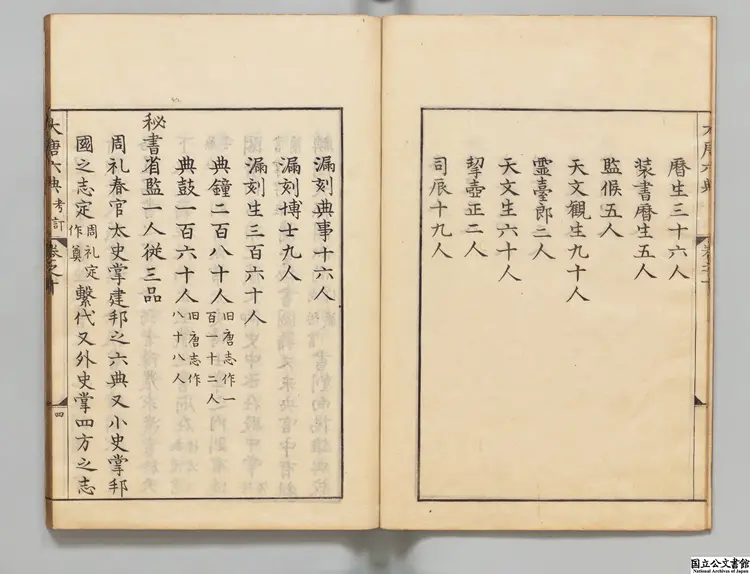 曆生三十六人
装書曆生五人
監候五人
天文観生九十人
霊臺郎二人
天文生六十人
挈壺正二人
司辰十九人
漏刻典事十六人
漏刻博士九人
漏刻生三百六十人
典鐘二百八十人旧唐志作一百一十二人
典鼓一百六十人旧唐志作八十八人
秘書省監一人従三品
周礼春官太史掌建邦之六典又小史掌邦
國之志定周礼定作奠繫代又外史掌四方之志
大唐六典考訂 卷之十
四
国立公文書館
National Archives of Japan